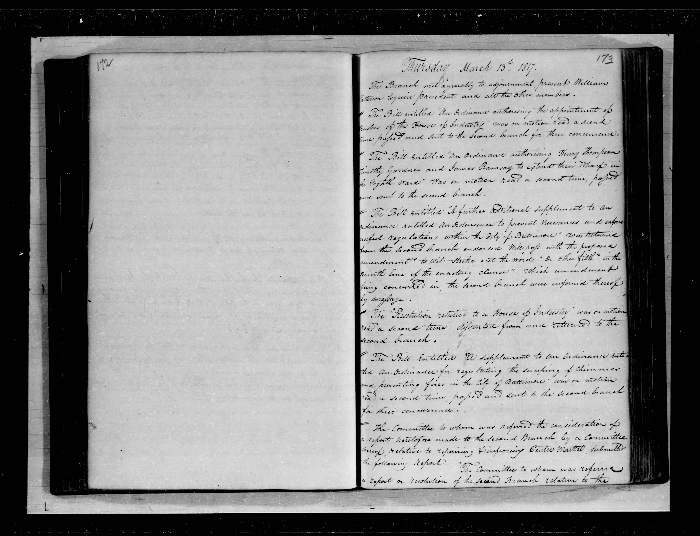 174
173
Thursday March 13th 1817.
The Branch met pursuant to adjournment, present William
Esquire president and all the other members.
" The Bill entitled An Ordinance authorising the appointment of
Trustees of the House of Industry was on motion read a second
time passed and sent to the second branch for their concurrence.
" The Bill entitled "An Ordinance authorising Henry Thompson
Timothy Gardner and James Ramsay to extend their Wharf in
the Eighth Ward" was on motion read a second time, passed
and sent to the second branch.
" The Bill entitled "A further additional supplement to an
ordinance entitled An Ordinance to prevent Nuisances and
useful regulations within the City of Baltimore" was returned
from the second branch endorsed "Will pass with the proposed
amendment" to wit "Strike out the words "or other filth" in the
line of the enacting clause" which amendment
being concurred in, the second branch were informed thereof
by message.
" The "Resolution relative to a House of Industry" was on motion
read a second time dissented from and returned to the
second branch.
" The Bill entitled "A supplement to an Ordinance
An Ordinance for regulating the sweeping of chimneys
and preventing fires in the City of Baltimore" was on motion
read a second time, passed and sent to the second branch
for their concurrence.
" The Committee to whom was referred the consideration of
a report heretofore made to the second Branch by a Committee
relative to repairing & improving Centre Market submitted
the following Report. "The Committee to whom was referred
a report or resolution of the second Branch relative to the